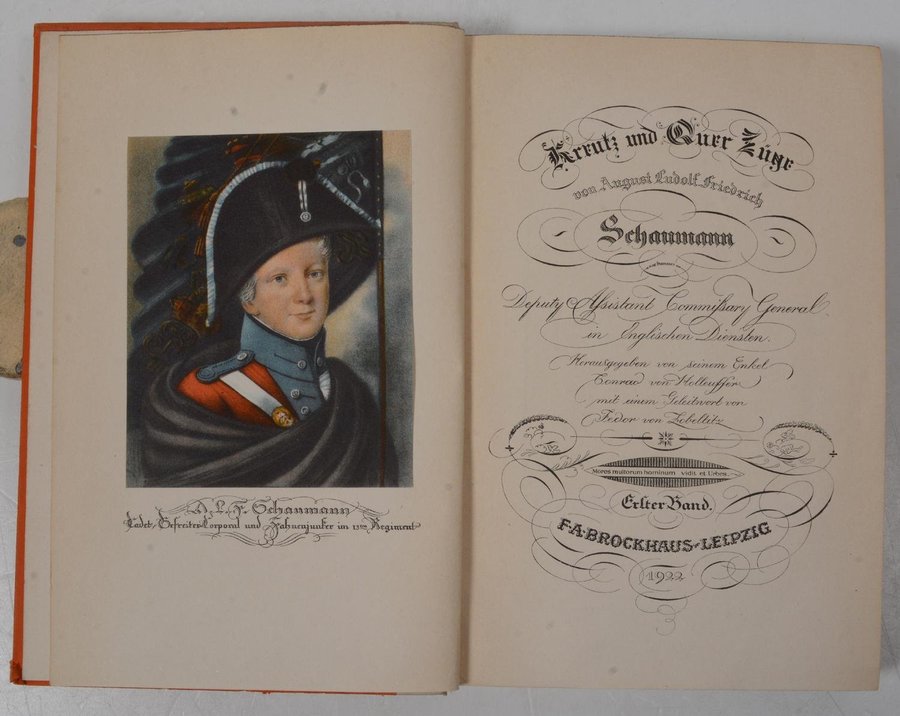 A. L. F. Schaumann
Cadet, Gefreiter-Corporal und Fahnenjunker im 13ten Regiment
Kreutz und Quer Züge
von August Ludolf Friedrich
Schaumann
Deputy Assistant Commissary General
in Englischen Diensten.
Herausgegeben von seinem Enkel
Conrad von Holleuffer
mit einem Geleitwort von
Fedor von Zobeltitz
Mores multorum hominum vidit et Urbes.
Erster Band.
F·A·BROCKHAUS-LEIPZIG
1922